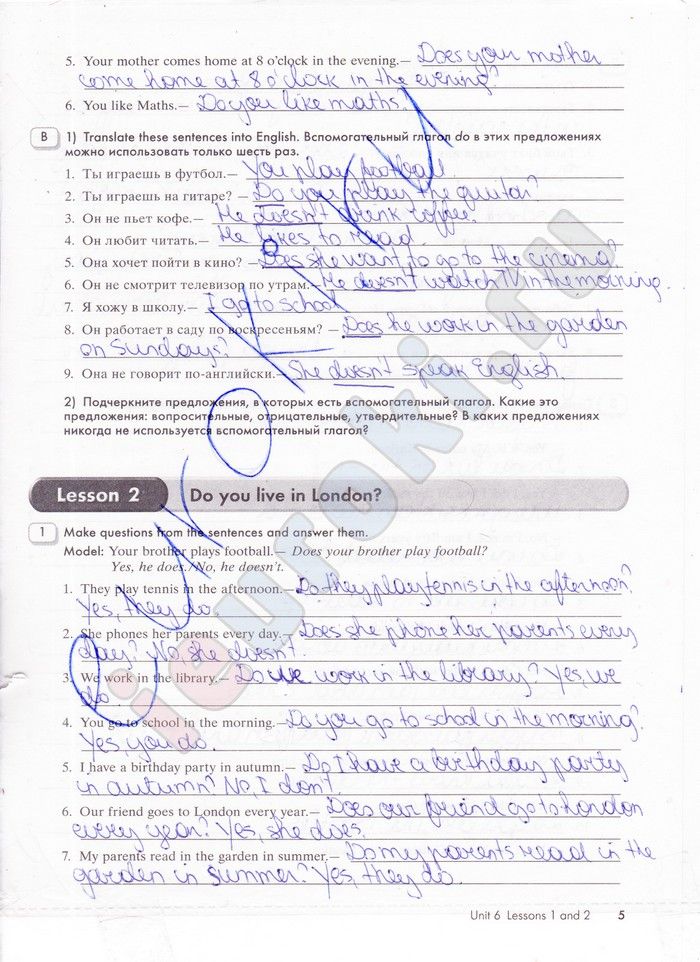 5. Your mother comes home at 8 o'clock in the evening.— Does your mother
come home at 8 o'clock in the evening?
6. You like Maths.— Do you like maths?
B 1) Translate these sentences into English. Вспомогательный глагол do в этих предложениях
можно использовать только шесть раз.
1. Ты играешь в футбол.— You play football.
2. Ты играешь на гитаре? — Do you play the guitar?
3. Он не пьет кофе.— He doesn't drink coffee.
4. Он любит читать.— He likes to read.
5. Она хочет пойти в кино? — Does she want to go to the cinema?
6. Он не смотрит телевизор по утрам.— He doesn't watch TV in the morning.
7. Я хожу в школу.— I go to school
8. Он работает в саду по воскресеньям? — Does he work in the garden
on Sundays?
9. Она не говорит по-английски.— She doesn't speak English.
2) Подчеркните предложения, в которых есть вспомогательный глагол. Какие это
предложения: вопросительные, отрицательные, утвердительные? В каких предложениях
никогда не используется вспомогательный глагол?
Lesson 2 Do you live in London?
1 Make questions from the sentences and answer them.
Model: Your brother plays football.— Does your brother play football?
Yes, he does./No, he doesn't.
1. They play tennis in the afternoon.— Do they play tennis in the afternoon?
Yes, they do.
2. She phones her parents every day.— Does she phone her parents every
day? No, she doesn't.
3. We work in the library.— Do we work in the library? Yes, we
do.
4. You go to school in the morning.— Do you go to school in the morning?
Yes, you do.
5. I have a birthday party in autumn.— Do I have a birthday party
in autumn? No, I don't.
6. Our friend goes to London every year.— Does our friend go to London
every year? Yes, she does.
7. My parents read in the garden in summer.— Do my parents read in the
garden in summer? Yes, they do.
Unit 6 Lessons 1 and 2 5
ieuroki.ru